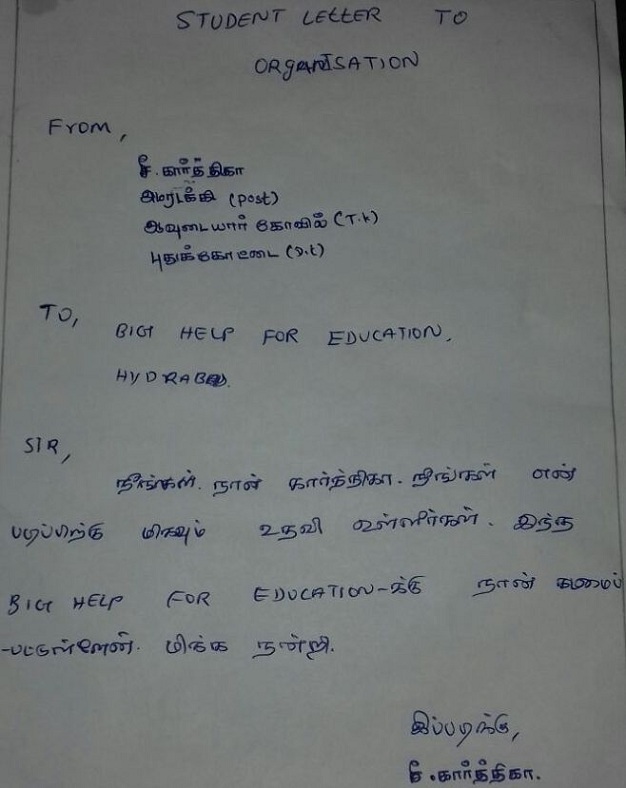 STUDENT LETTER TO
ORgANISATION
From,
சீ. கார்த்திகா
அமரடக்கி (post)
ஆவுடையார் கோவில் (T.k)
புதுக்கோட்டை (D.t)
TO,
BIG HELP FOR EDUCATION,
HYDRABED.
SIR,
நீங்கள். நான் கார்த்திகா. நீங்கள் என்
படிப்பிற்கு மிகவும் உதவி உள்ளீர்கள். இந்த
BIG HELP FOR EDUCATION-க்கு நான் கடமைப்
-பட்டுள்ளேன். மிக்க நன்றி.
இப்படிக்கு,
சீ. கார்த்திகா.